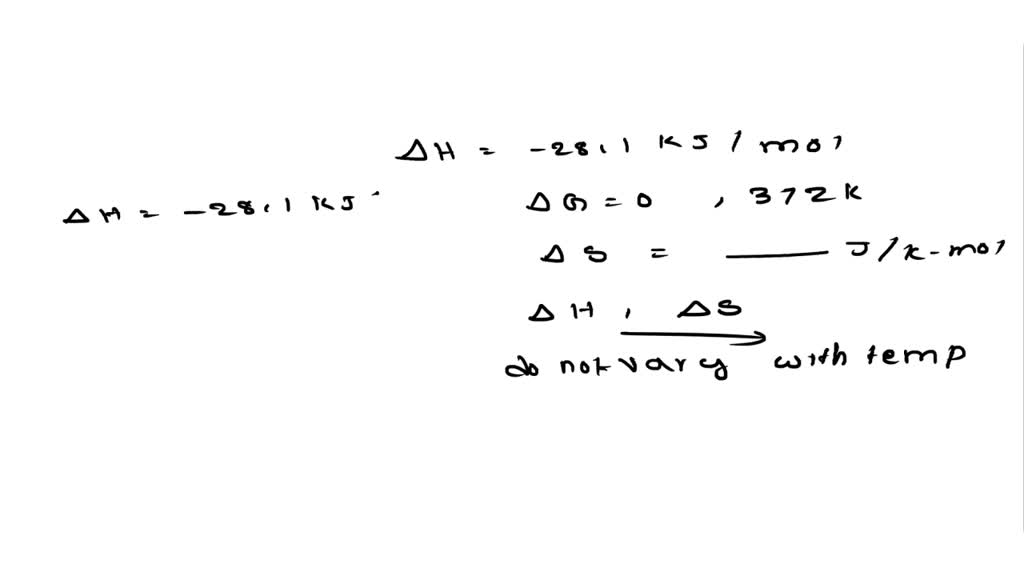 ΔH = -28.1 KJ / mol
ΔH = -28.1 KJ
ΔG = 0 , 372 K
ΔS = ____ J/K-mol
ΔH , ΔS
do not vary with temp